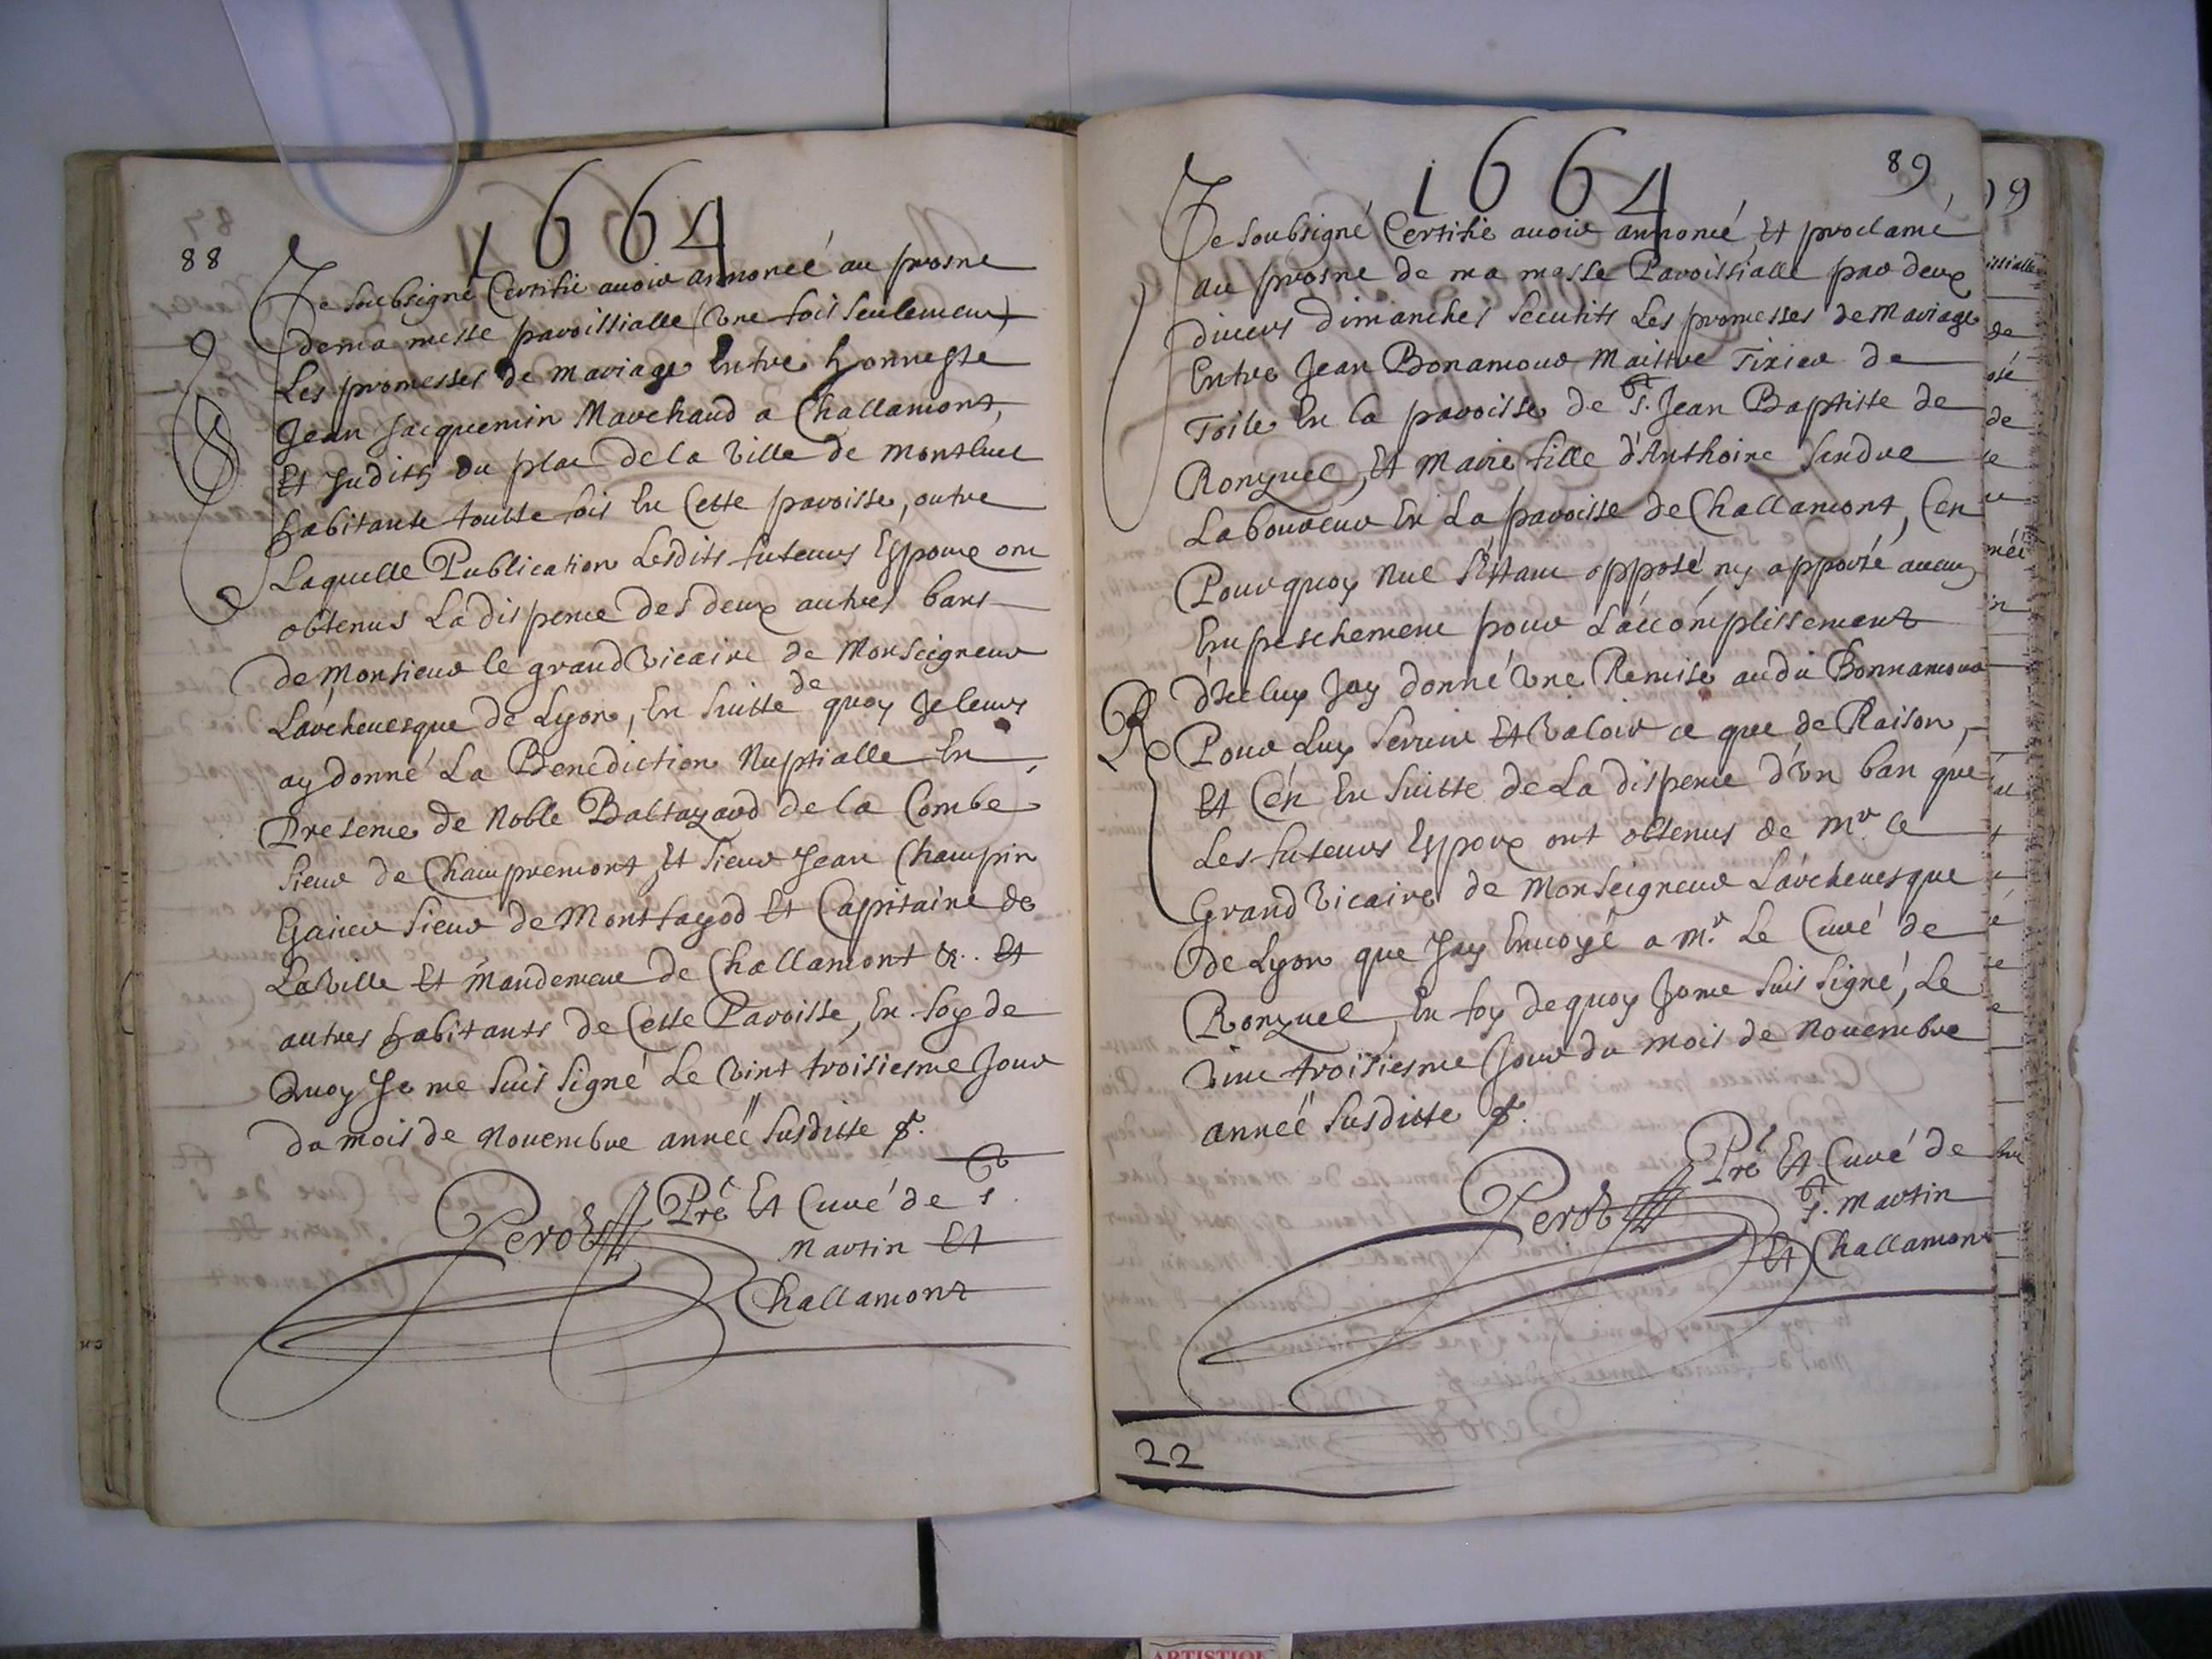 88
1664
Je soubsigné Certifie auoir annoncé au prosne
de ma messe paroissialle (Vne fois seulement)
Les promesses de mariage Entre honneste
Jean Jacquemin Marchand a Challamont,
Et Judith du plac de la Ville de montluel
habitante toutte fois En Cette paroisse, outre
Laquelle Publication Lesdits futeurs Espoux ont
obtenus La dispence des deux autres bans
de Monsieur le grand Vicaire de Monseigneur
L'archeuesque de Lyon, En suitte de quoy Je leurs
ay donné La Benediction Nuptialle En
Presence de Noble Baltazard de la Combe
sieur de Champremont, Et sieur Jean Champin
sieur de Montfagod Et Capitaine de
La Ville Et Mandement de Challamont &. Et
autres habitants de Cette Paroisse, En foy de
Quoy Je me suis signé Le Vint troisiesme Jour
du mois de Nouembre année susditte
Perot Pre Et Curé de S
Martin Et
Challamont
89
1664
Je soubsigné Certifie auoir annoncé Et proclamé
au prosne de ma messe Paroissialle par deux
diuers dimanches secutifs Les promesses de Mariage
Entre Jean Bonamour Maistre Tixier de
Toile En la paroisse de St. Jean Baptiste de
Ronzuel, Et Marie fille d'Anthoine Sandre
Laboureur En La paroisse de Challamont, Cen
Pourquoy Nul s'éstant opposé ny apporté aucun
Empeschement pour L'accomplissement
d'Iceluy Jay donné Vne Remise audit Bonnamour
Pour Luy seruir Et Valoir ce que de Raison,
Et Cén En suitte de La dispence d'Vn ban que
Les futeurs Espoux ont obtenus de Mr le
Grand Vicaire de Monseigneur L'archeuesque
de Lyon que Jay Enuoyé a Mr. Le Curé de
Ronzuel, En foy de quoy Je me suis signé, Le
Vint troisiesme Jour du mois de Nouembre
année susditte
Perot Pre Et Curé de
St. Martin
Et Challamont
22